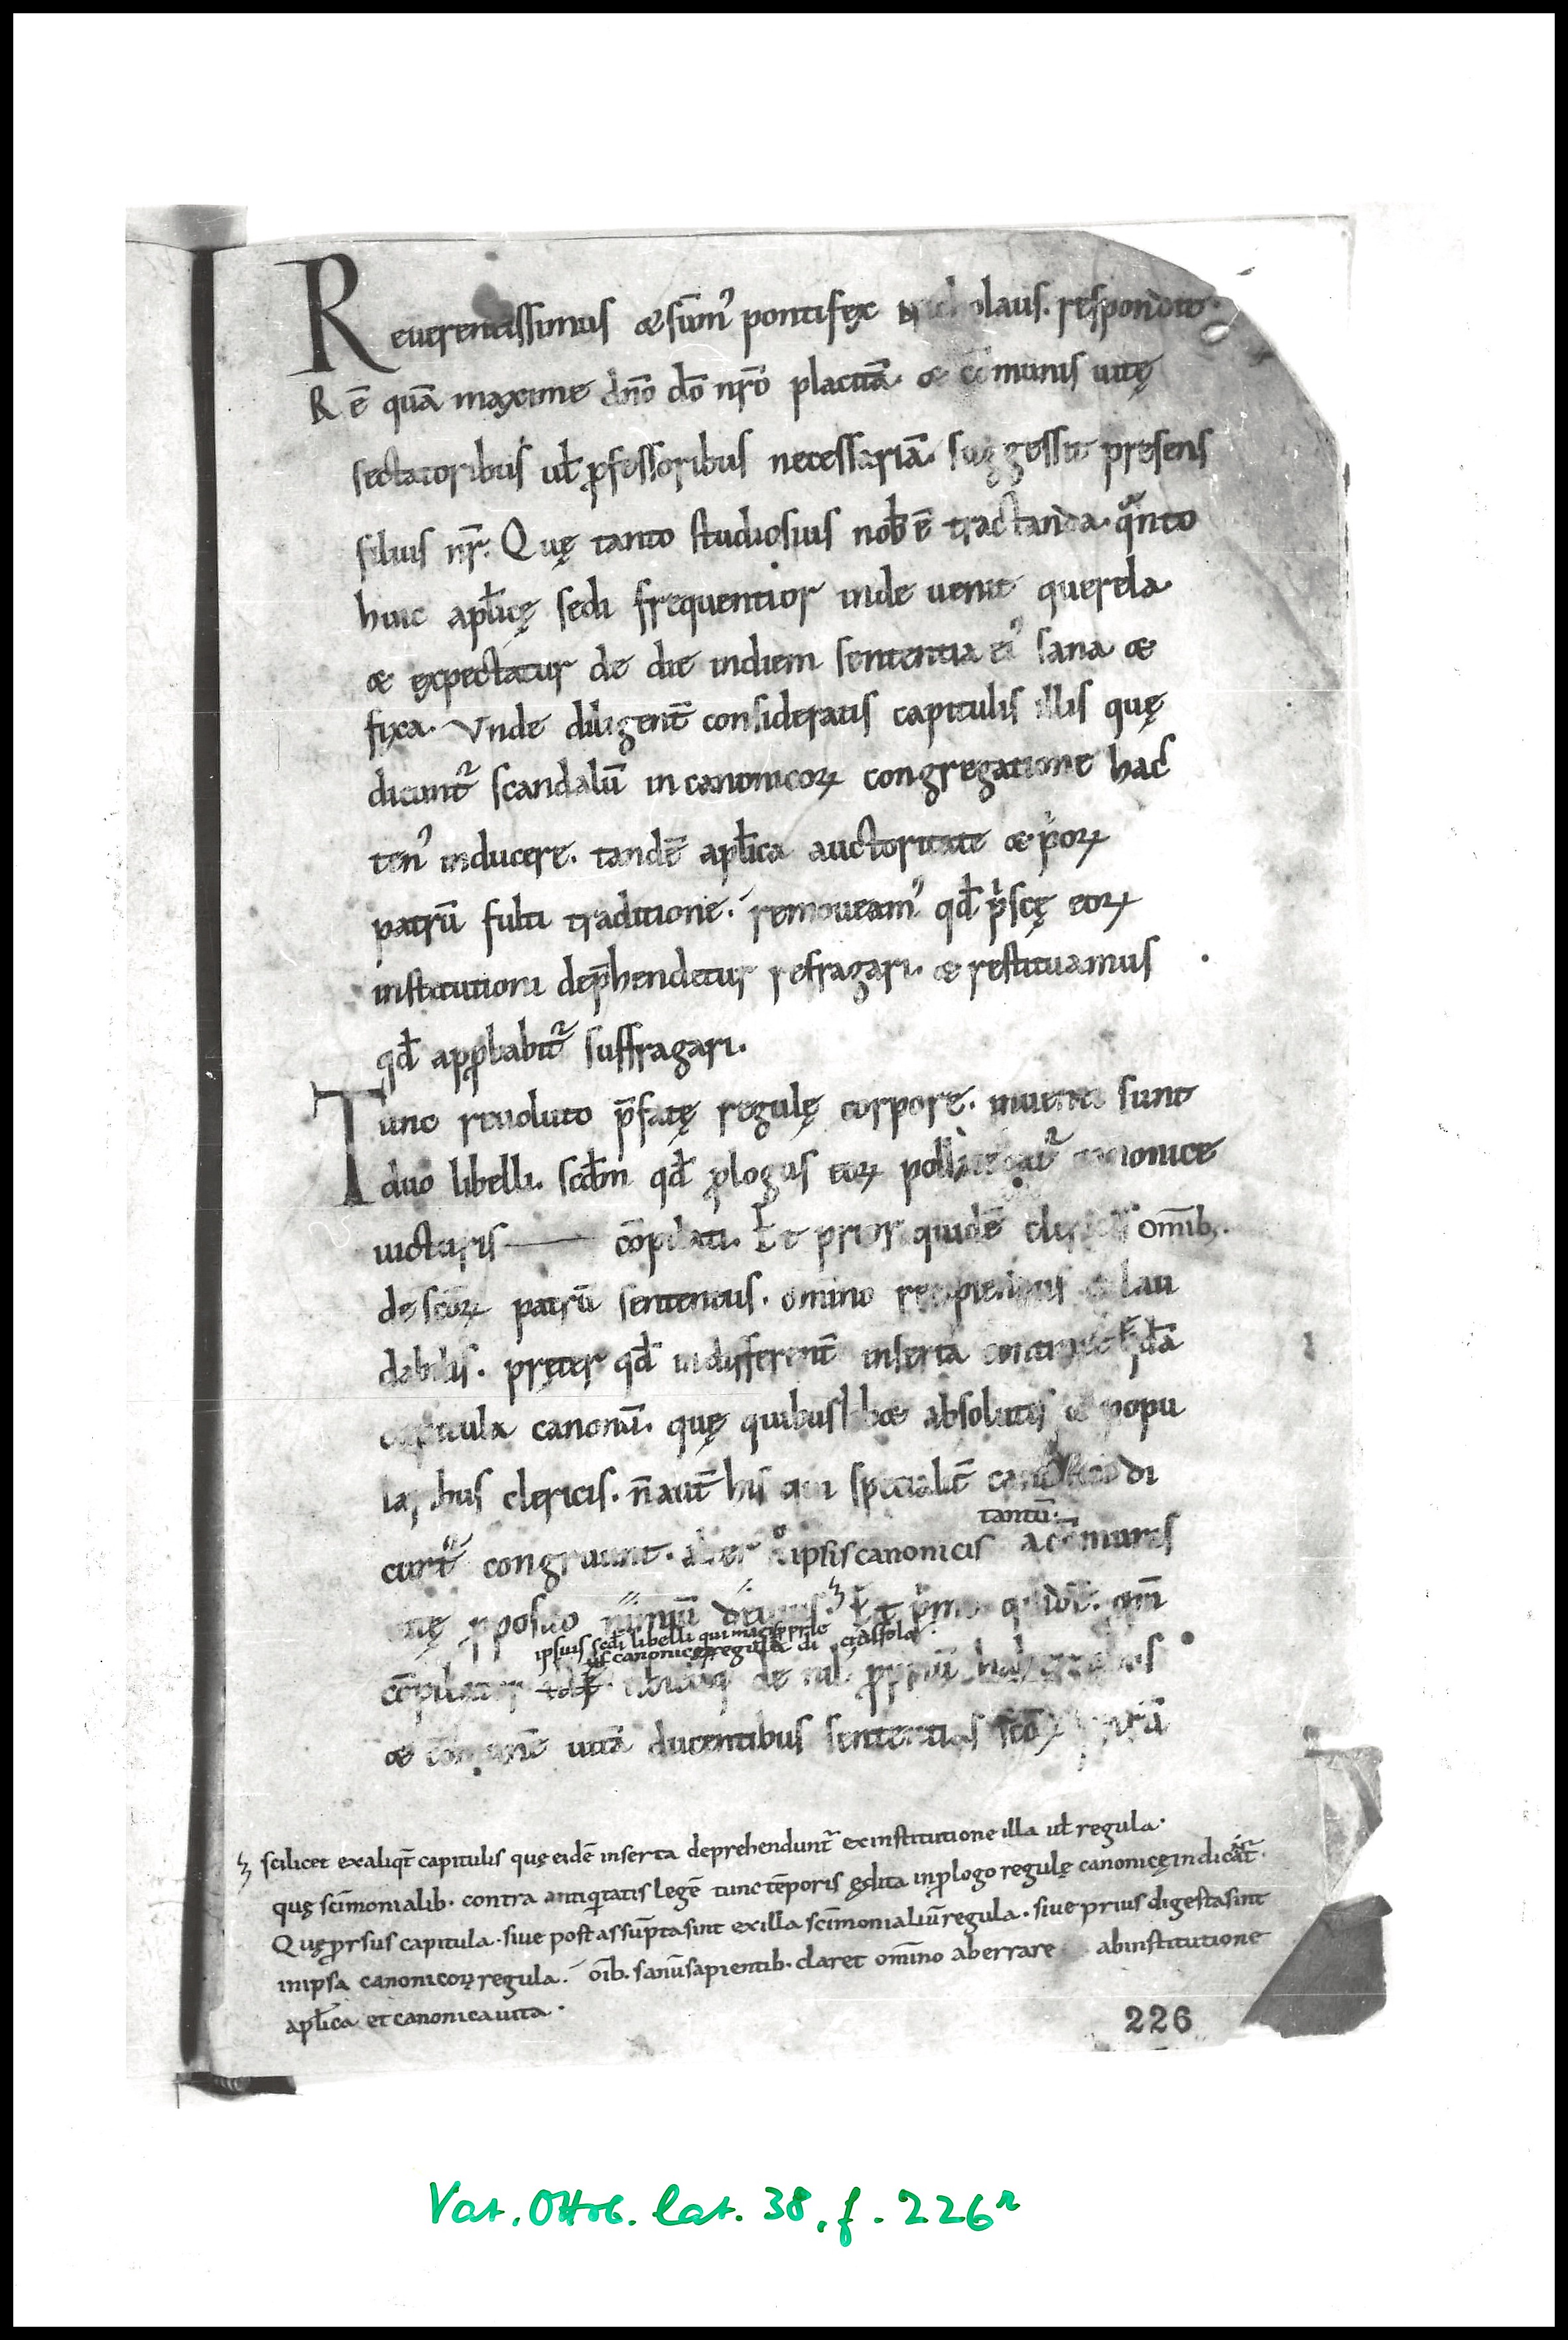 Reuerentissimus & sūm᾽ pontifex Nicholaus. respondit.
Rē quā maxime dn̄o dō nr̄o placitā. & cōmunis uitę
sectatoribus ul̄ ꝓfessoribus necessariā. suggessit presens
filius nr̄. Quę tanto studiosius nob̄ ē tractanda. qͣnto
huic apl̄icę sedi frequentior inde uenit querela.
& expectatur de die indiem sententia ei᾽ sana &
fixa. Vnde diligent̄ consideratis capitulis illis quę
dicunt᷑ scandalū in canonicoꝝ congregatione hac
ten᾽ inducere. tandē apl̄ica auctoritate & pͥoꝝ
patrū fulti traditione. remoueam᾽ qd̄ pͥscę eoꝝ
institutioni dep̄hendetur refragari. & restituamus
qd̄ apꝓbabit᷑ suffragari.
Tunc reuoluto p̄fatę regulę corpore. inuenti sunt
duo libelli. scd̄m qd̄ ꝓlogus eoꝝ canonice
uicturis cōpilati. Et prior quidē clericis om̄ib;.
de scōꝝ patrū sententiis. omīno recipiendus & lau
dabilis. pręter qd̄ indifferent̄ inserta q̄dā
capitula canonū. quę quibuslib& absolutis & popu
laribus clericis. n̄ aut̄ his qui specialit̄ canonici di
cunt᷑ congruunt. alter ů ipsis canonicis tantū. a cōmunis
uitę ꝓposito nimiū deuius. Et pͥmo quidē. om̄
ipsius scd̄i libelli qui magis ꝓprie
canonicoꝝ regula di
cōpilator de nil ꝓpriū habentibus
& cōmunē uitā ducentibus sententias scōꝝ patrū
scilicet ex aliqͥt capitulis quę eidē inserta deprehendunt᷑ ex institutione illa ul̄ regula.
quę scīmonialib. contra antiqͥtatis legē tunc tēporis ędita in ꝓlogo regulę canonicę indicat᷑.
Quę ꝓrsus capitula. siue post assūpta sint ex illa scīmonialiū regula. siue prius digesta sint
in ipsa canonicoꝝ regula. oīb. sanū sapientib. claret om̄ino aberrare ab institutione
apl̄ica et canonica uita.
226
Vat. Ottob. lat. 38, f. 226ʳ